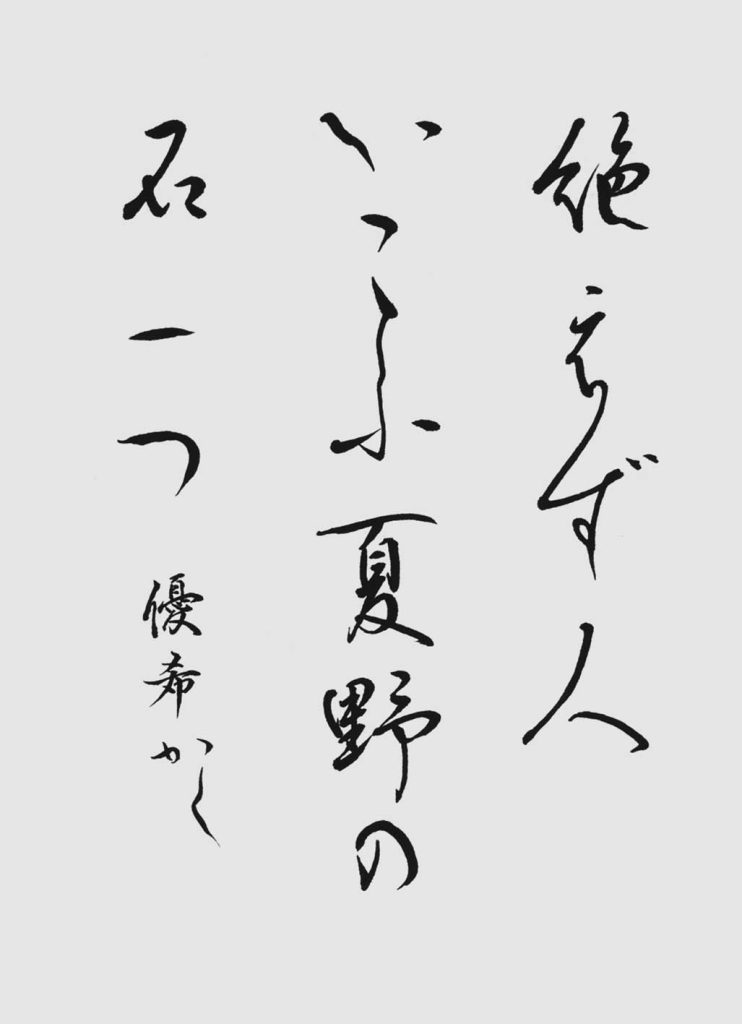 絶えず人
いこふ夏野の
石一つ 優希かく